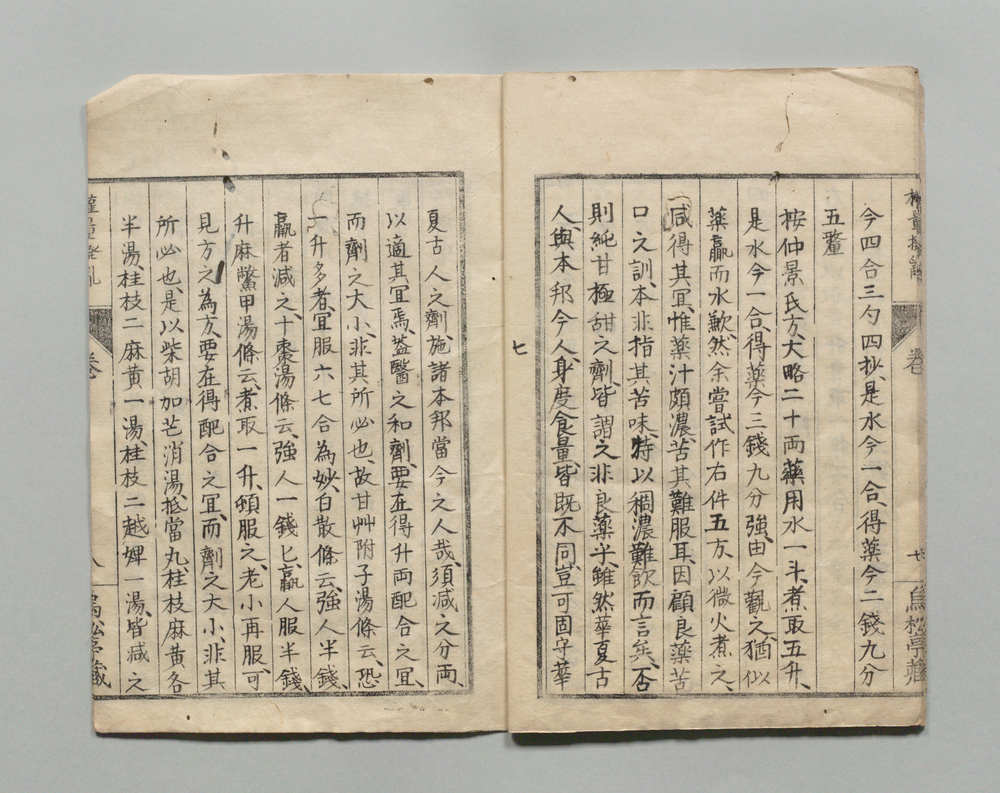 今四合三勺四抄、是水今一合、得薬今二錢九分
五釐
按仲景氏方、大略二十両藥、用水一斗、煮取五升、
是水今一合、得薬今三錢九分強、由今觀之、猶似
薬羸而水歉、然余嘗試作右件五方、以微火煮之、
咸得其冝、惟薬汁頗濃、苦其難服耳、因顧良薬苦
口之訓、本非指其苦味、特以稠濃難飲而言矣、否
則純甘極甜之劑、皆謂之非良薬乎、雖然華夏古
人、與本邦今人、身度食量、皆既不同、豈可固守華
七
夏古人之劑、施諸本邦當今之人哉、須減之分両、
以適其冝焉、葢醫之和劑、要在得升両配合之冝、
而劑之大小、非其所必也、故甘艸附子湯條云、恐
一升多者、冝服六七合為妙、白散條云、強人半錢、
羸者減之、十棗湯條云、強人一錢匕、羸人服半錢、
升麻鱉甲湯條云、煮取一升、頓服之、老小再服、可
見方之為方、要在得配合之冝、而劑之大小、非其
所必也、是以柴胡加芒消湯、抵當丸、桂枝麻黄各
半湯、桂枝二麻黄一湯、桂枝二越婢一湯、皆減之
卷
七
烏松亭藏